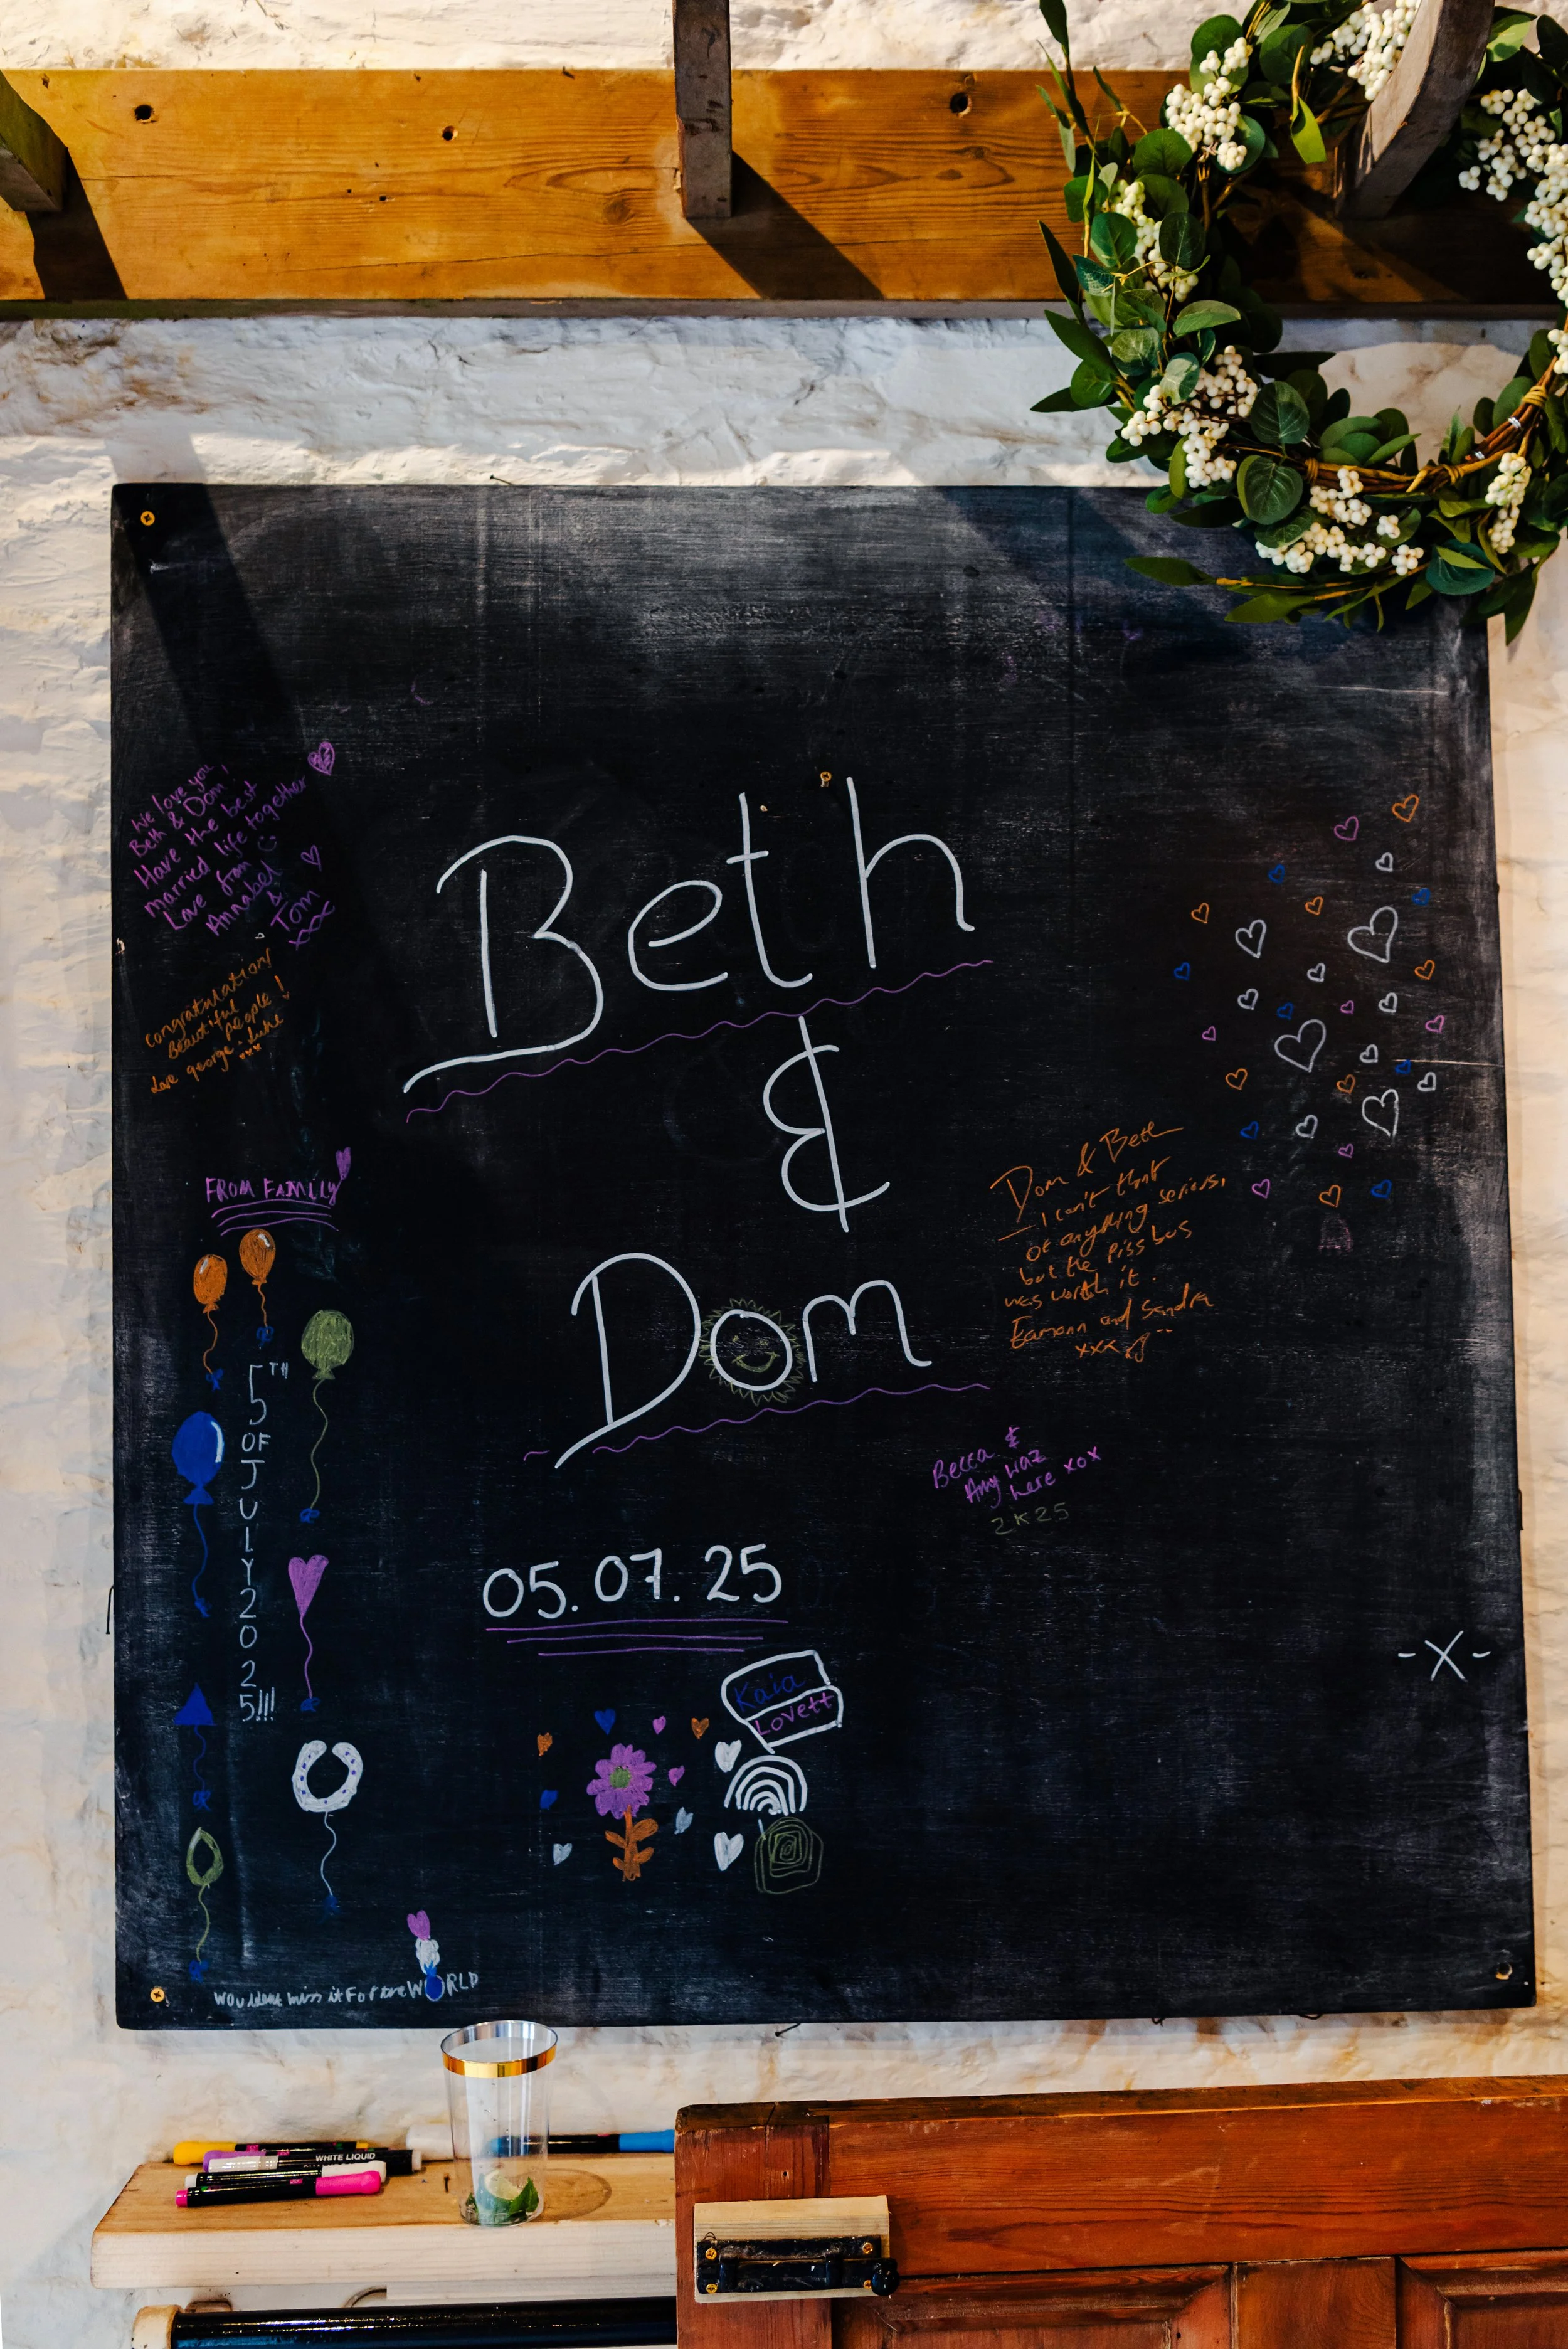 We love you
Beth & Dom!
Have the best
married life together
Love from
Annabel
&
Tom
xxx
congratulation
Beautiful
people!
love george & Luke
xxx
Beth
&
Dom
05.07.25
FROM FAMILY
5TH
OF
J
U
L
Y
2
0
2
5!!!
Dom & Beth
- I can't think
of anything serious,
but the piss bus
was worth it.
Eamonn and Sandra
xxx
Becca &
Amy waz
here xox
2K25
-X-
Kaia
Lovett
miss it For the WORLD
WHITE LIQUID